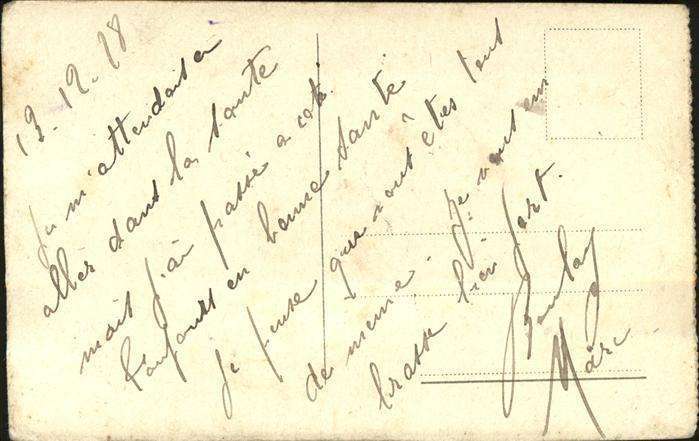 13-12-18
Je m'attendais a
aller dans la
mais j'ai passé a coté.
Toujours en bonne santé
Je pense que vous êtes tous
de meme. Je vous em
brasse bien fort.
Marc